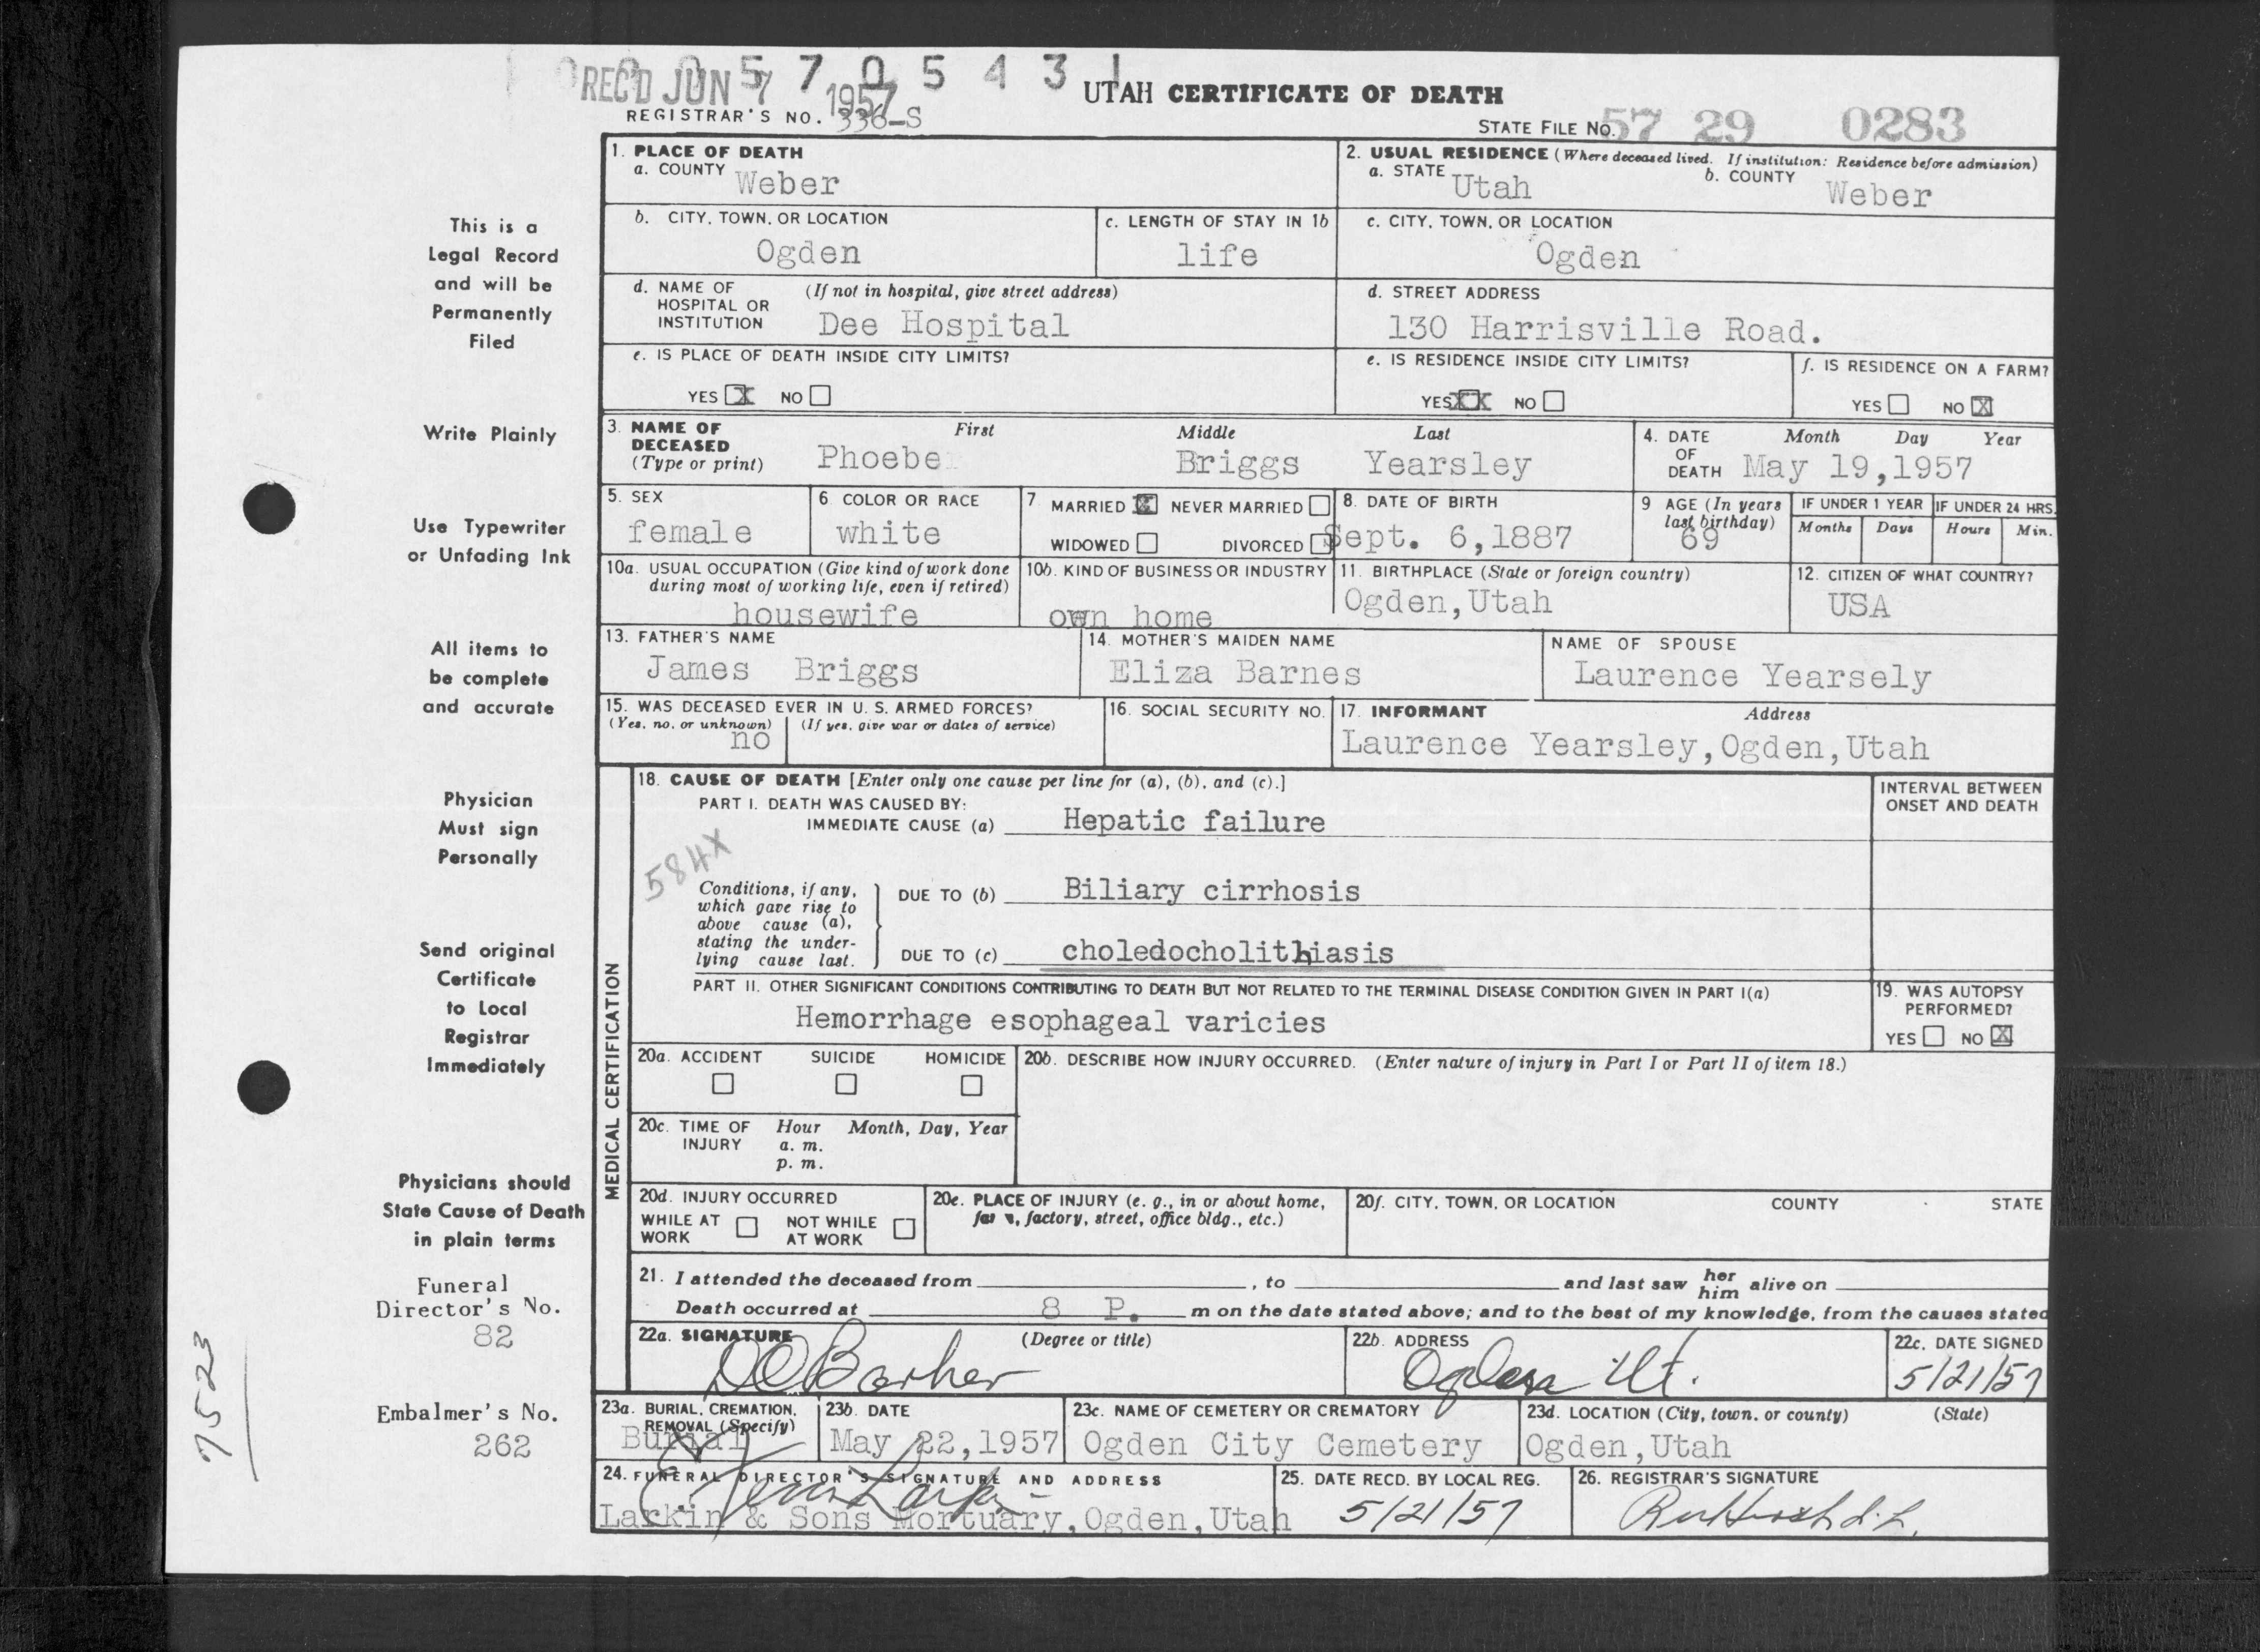 REC'D JUN 7 1957
570543
UTAH CERTIFICATE OF DEATH
REGISTRAR'S NO. 336-S
STATE FILE NO. 57 29 0283
This is a
Legal Record
and will be
Permanently
Filed
Write Plainly
Use Typewriter
or Unfading Ink
All items to
be complete
and accurate
Physician
Must sign
Personally
Send original
Certificate
to Local
Registrar
Immediately
Physicians should
State Cause of Death
in plain terms
Funeral
Director's No.
82
Embalmer's No.
262
7523
1. PLACE OF DEATH
a. COUNTY Weber
2. USUAL RESIDENCE (Where deceased lived. If institution: Residence before admission)
a. STATE Utah b. COUNTY Weber
b. CITY, TOWN, OR LOCATION
Ogden
c. LENGTH OF STAY IN 1b
life
c. CITY, TOWN, OR LOCATION
Ogden
d. NAME OF HOSPITAL OR INSTITUTION (If not in hospital, give street address)
Dee Hospital
d. STREET ADDRESS
130 Harrisville Road.
e. IS PLACE OF DEATH INSIDE CITY LIMITS?
YES X NO
e. IS RESIDENCE INSIDE CITY LIMITS?
YES XX NO
f. IS RESIDENCE ON A FARM?
YES NO X
3. NAME OF DECEASED (Type or print)
First Middle Last
Phoebe Briggs Yearsley
4. DATE OF DEATH Month Day Year
May 19,1957
5. SEX
female
6. COLOR OR RACE
white
7. MARRIED X NEVER MARRIED
WIDOWED DIVORCED
8. DATE OF BIRTH
Sept. 6,1887
9 AGE (In years last birthday)
69
IF UNDER 1 YEAR
Months Days
IF UNDER 24 HRS.
Hours Min.
10a. USUAL OCCUPATION (Give kind of work done during most of working life, even if retired)
housewife
10b. KIND OF BUSINESS OR INDUSTRY
own home
11. BIRTHPLACE (State or foreign country)
Ogden,Utah
12. CITIZEN OF WHAT COUNTRY?
USA
13. FATHER'S NAME
James Briggs
14. MOTHER'S MAIDEN NAME
Eliza Barnes
NAME OF SPOUSE
Laurence Yearsely
15. WAS DECEASED EVER IN U. S. ARMED FORCES?
(Yes, no, or unknown) (If yes, give war or dates of service)
no
16. SOCIAL SECURITY NO.
17. INFORMANT Address
Laurence Yearsley,Ogden,Utah
MEDICAL CERTIFICATION
18. CAUSE OF DEATH [Enter only one cause per line for (a), (b), and (c).]
INTERVAL BETWEEN ONSET AND DEATH
PART I. DEATH WAS CAUSED BY:
IMMEDIATE CAUSE (a) Hepatic failure
584X
Conditions, if any,
which gave rise to
above cause (a),
stating the under-
lying cause last.
DUE TO (b) Biliary cirrhosis
DUE TO (c) choledocholithiasis
PART II. OTHER SIGNIFICANT CONDITIONS CONTRIBUTING TO DEATH BUT NOT RELATED TO THE TERMINAL DISEASE CONDITION GIVEN IN PART I(a)
Hemorrhage esophageal varicies
19. WAS AUTOPSY PERFORMED?
YES NO X
20a. ACCIDENT SUICIDE HOMICIDE
20b. DESCRIBE HOW INJURY OCCURRED. (Enter nature of injury in Part I or Part II of item 18.)
20c. TIME OF INJURY Hour Month, Day, Year
a. m.
p. m.
20d. INJURY OCCURRED
WHILE AT WORK NOT WHILE AT WORK
20e. PLACE OF INJURY (e. g., in or about home, farm, factory, street, office bldg., etc.)
20f. CITY, TOWN, OR LOCATION COUNTY STATE
21. I attended the deceased from , to and last saw her him alive on
Death occurred at 8 P. m on the date stated above; and to the best of my knowledge, from the causes stated
22a. SIGNATURE (Degree or title)
22b. ADDRESS
Ogden Ut.
22c. DATE SIGNED
5/21/57
23a. BURIAL, CREMATION, REMOVAL (Specify)
Burial
23b. DATE
May 22,1957
23c. NAME OF CEMETERY OR CREMATORY
Ogden City Cemetery
23d. LOCATION (City, town, or county) (State)
Ogden,Utah
24. FUNERAL DIRECTOR'S SIGNATURE AND ADDRESS
Larkin & Sons Mortuary,Ogden,Utah
25. DATE RECD. BY LOCAL REG.
5/21/57
26. REGISTRAR'S SIGNATURE